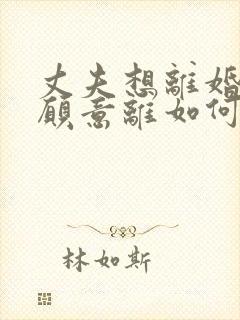 丈夫想離婚
願意離如何
林如斯